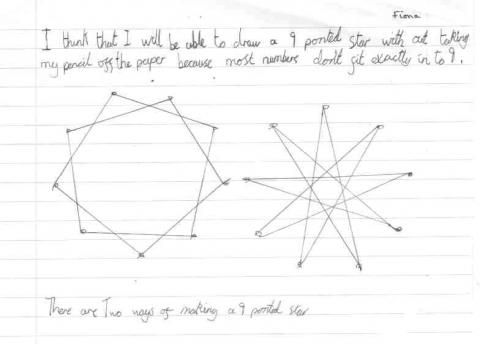 Fiona
I think that I will be able to draw a 9 ponted star with out taking
my pencil off the paper because most numbers don't fit exactly in to 9.
There are Two ways of making a 9 ponted star